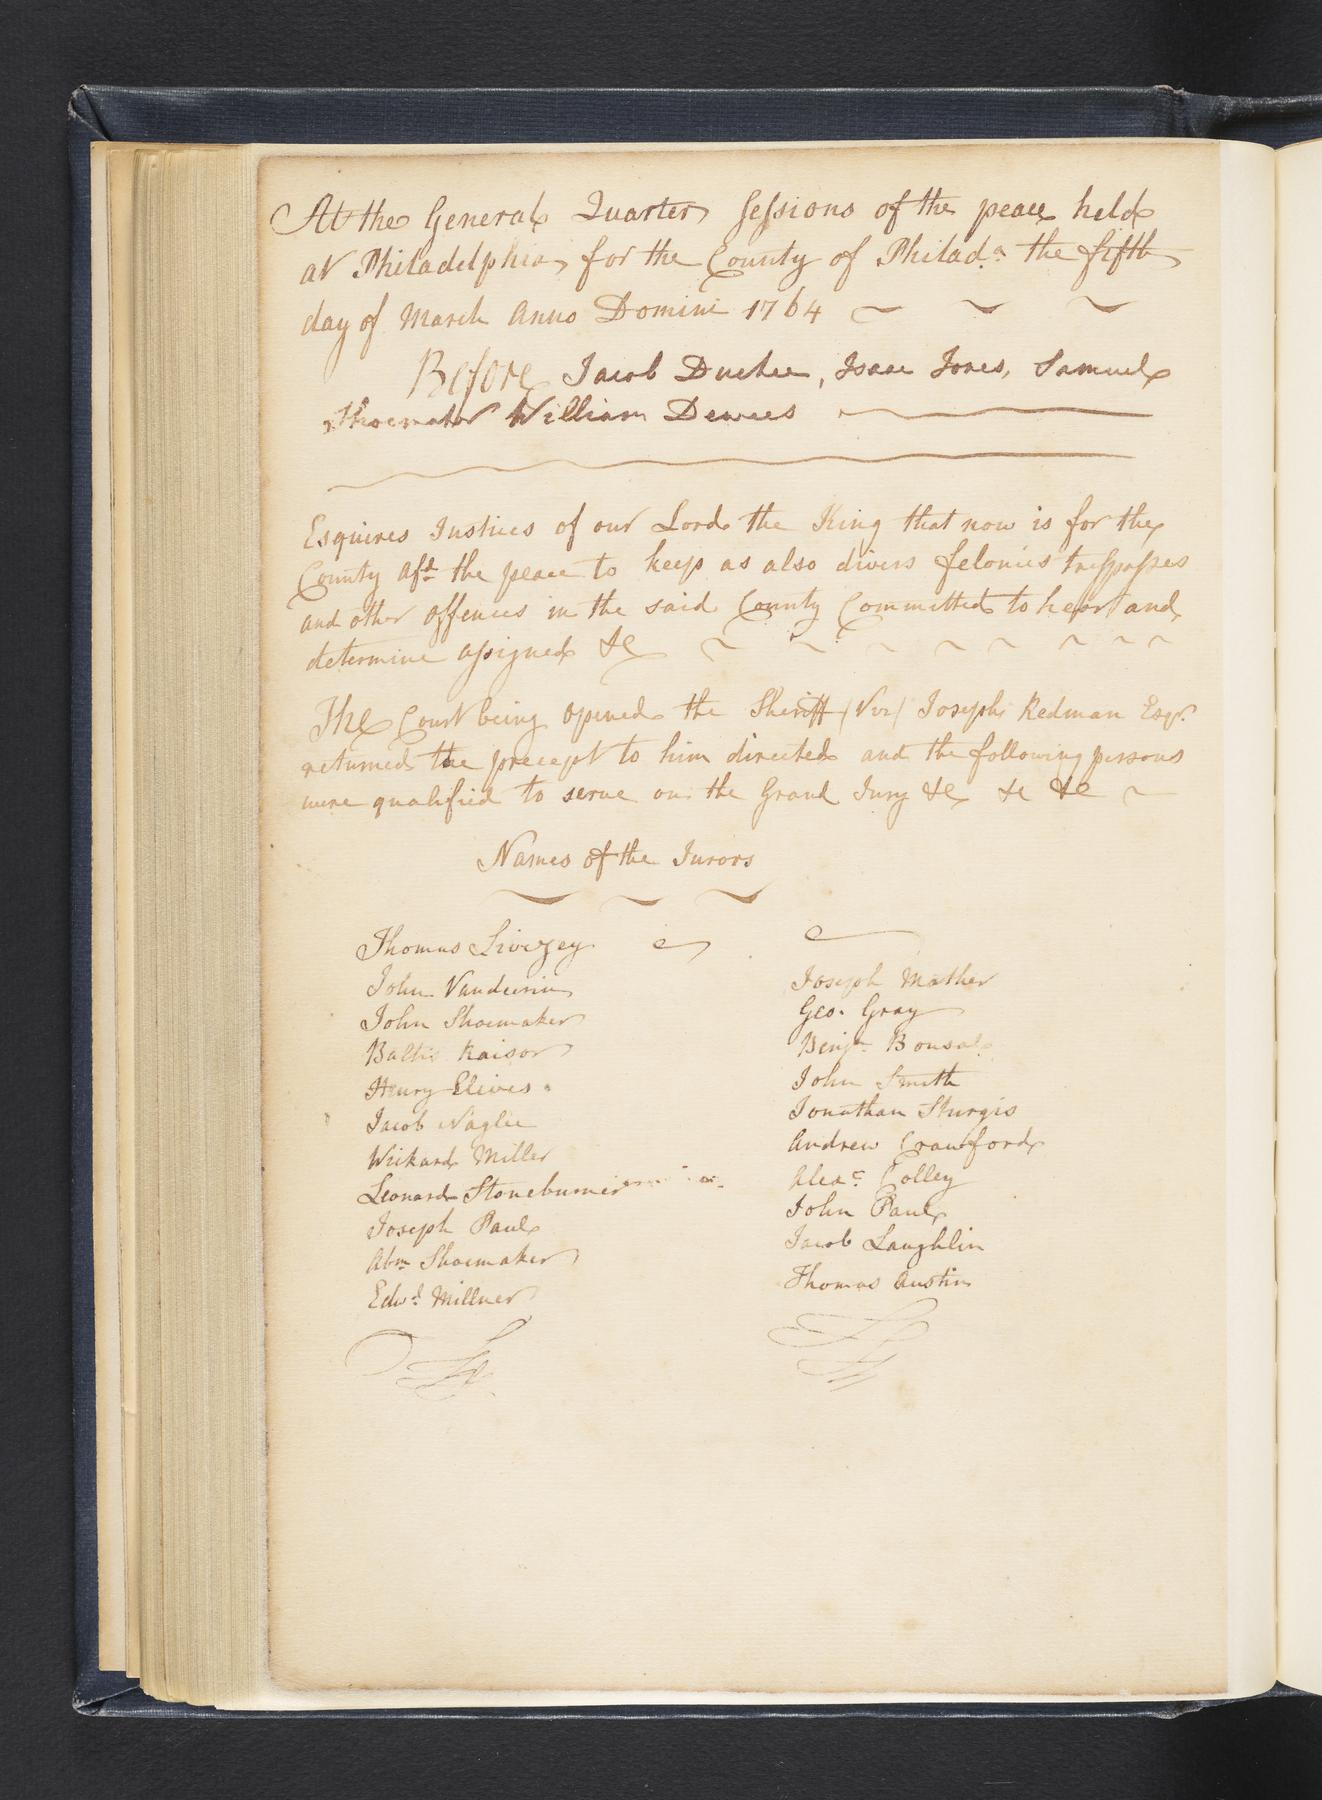 At the General Quarter Sessions of the peace held
at Philadelphia, for the County of Philad.a the fifth
day of March Anno Domini 1764
Before Jacob Duchee, Isaac Jones, Samuel
Shoemaker William Dewees
Esquires Justices of our Lord the King that now is for the
County afd. the peace to keep as also divers felonies tresspasses
and other offences in the said County Committed to hear and
determine assigned &c
The Court being opened the Sheriff (Viz) Joseph Redman Esqr.
returned the precept to him directed and the following persons
were qualified to serve on the Grand Jury &c &c &c
Names of the Jurors
Thomas Livezey
John Vanderin
John Shoemaker
Baltis Raisor
Henry Elives
Jacob Naglee
Wickard Miller
Leonard Stoneburner
Joseph Paul
Abm Shoemaker
Edwd. Millner
Joseph Mather
Geo. Gray
Benjn. Bonsal
John Smith
Jonathan Sturgis
Andrew Crawford
Alexr. Colley
John Paul
Jacob Laughlin
Thomas Austin